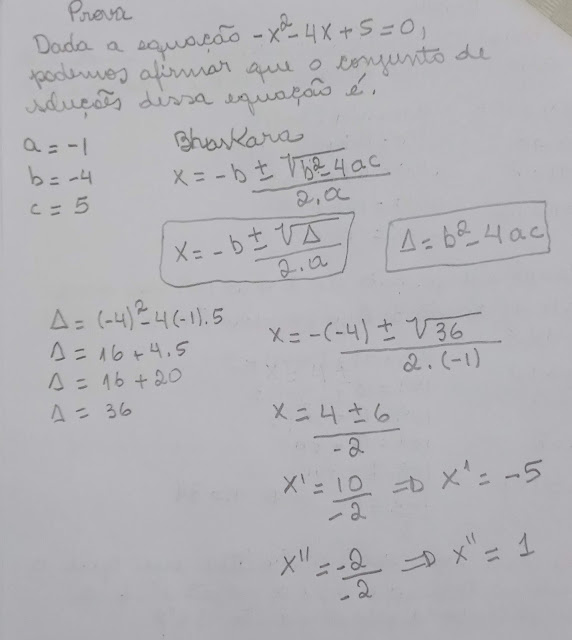 Prova
Dada a equação -x²-4x+5=0,
podemos afirmar que o conjunto de
soluções dessa equação é.
a = -1
b = -4
c = 5
Bhaskara
x = -b ± √b²-4ac / 2.a
x = -b ± √Δ / 2.a
Δ = b²-4ac
Δ = (-4)²-4(-1).5
Δ = 16+4.5
Δ = 16+20
Δ = 36
x = -(-4) ± √36 / 2.(-1)
x = 4 ± 6 / -2
x' = 10 / -2 ⇒ x' = -5
x'' = -2 / -2 ⇒ x'' = 1